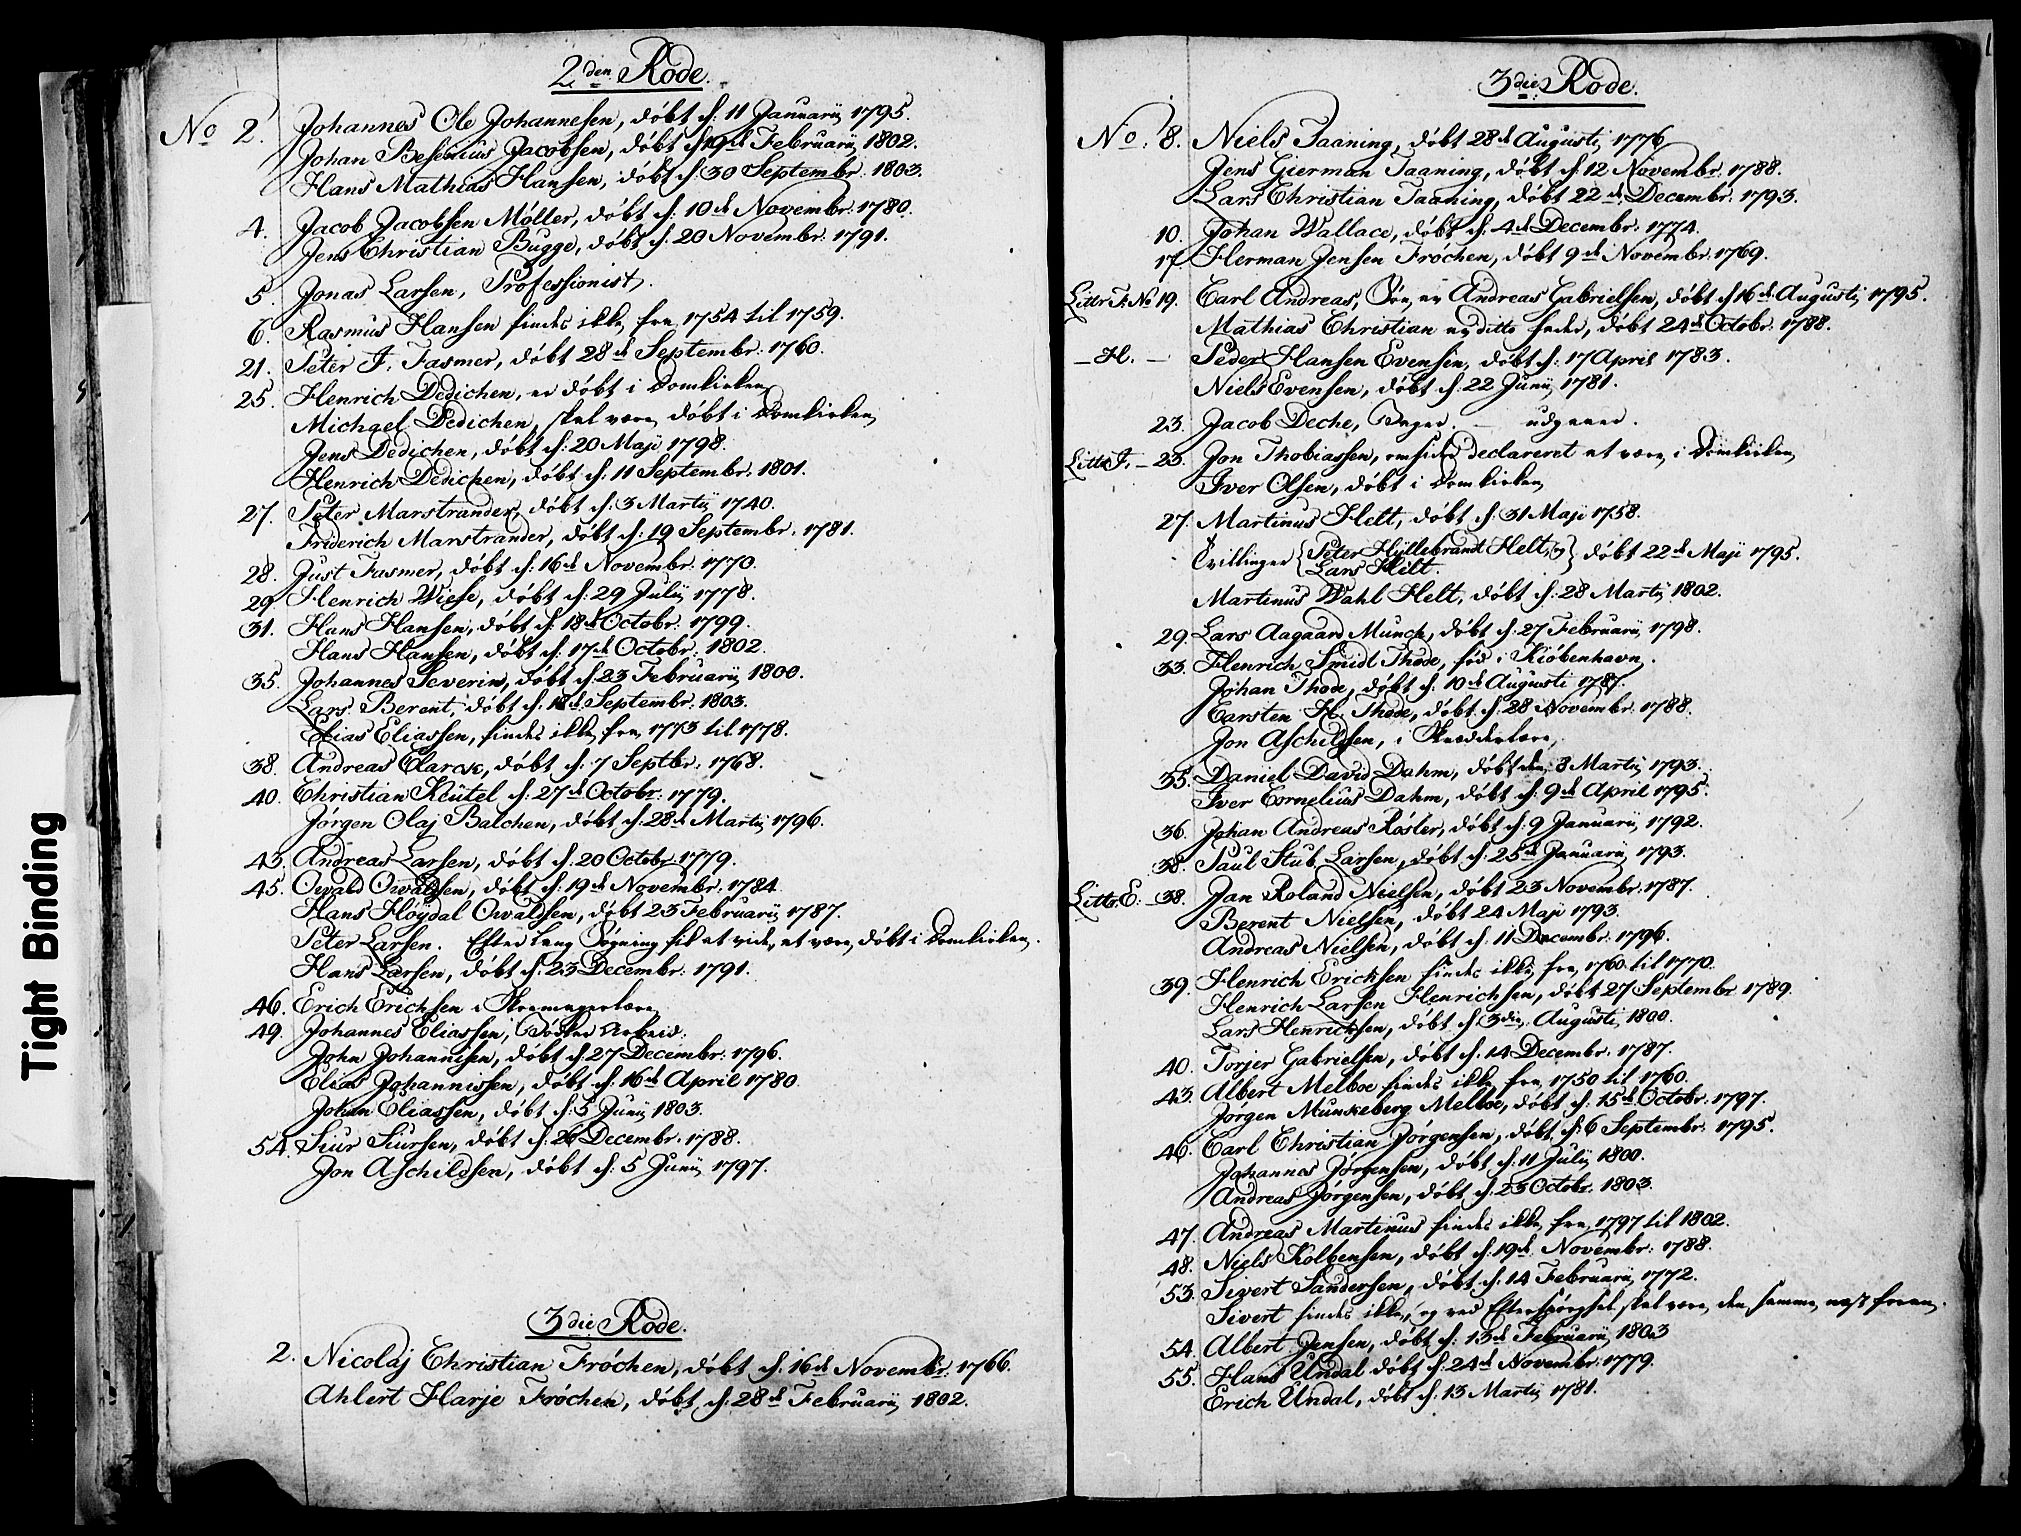 2den Rode.
No 2. Johannes Ole Johannesen, döbt d: 11 Januarij 1795.
Johan Besenius Jacobsen, döbt d 19d Februarij 1802.
Hans Mathias Hansen, döbt d: 30 Septembr: 1803.
4. Jacob Jacobsen Möller, döbt d: 10d Novembr: 1780.
Jens Christian Bugge, döbt d: 20 Novembr: 1791.
5. Jonas Larsen, Professionist.
6. Rasmus Hansen findes ikke fra 1754 til 1759.
21. Peter J. Fasmer, döbt 28d Septembr: 1760.
25. Henrich Dedichen, er döbt i Domkirken
Michael Dedichen, skal være döbt i Domkirken
Jens Dedichen, döbt d: 20 Maji 1798.
Henrich Dedichen, döbt d: 11 Septembr: 1801.
27. Peter Marstrander, döbt d: 3 Martij 1740.
Friderich Marstrander, döbt d: 19 Septembr: 1781.
28. Just Fasmer, döbt d: 16d Novembr: 1770.
29. Henrich Wiese, döbt d: 29 Julij 1778.
31. Hans Hansen, döbt d: 18d Octobr: 1799.
Hans Hansen, döbt d: 17d Octobr: 1802.
35. Johannes Severin, döbt d: 23 Februarij 1800.
Lars Berent, döbt d: 18d Septembr: 1803.
Elias Eliassen, findes ikke fra 1773 til 1778.
38. Andreas Clarck, döbt d: 7 Septbr: 1768.
40. Christian Keütel d: 27d Octobr: 1779.
Jörgen Olaj Balchen, döbt d: 28d Martij 1796.
43. Andreas Larsen, döbt d. 20 Octobr 1779.
45. Owald Owaldsen, döbt d: 19d Novembr: 1784.
Hans Höydal Owaldsen, döbt 23 Februarij 1787.
Peter Larsen. Efter lang Sögning fik at vide, at være döbt i Domkirken.
Hans Larsen, döbt d: 23 Decembr: 1791.
46. Erich Erichsen i Skomagerlære
49. Johannes Eliassen, Bödker Arbeid.
John Johannisen, döbt d: 27 Decembr: 1796.
Elias Johannissen, döbt d: 16d April 1780.
Johan Eliassen, döbt d: 5 Junij 1803.
54. Siur Siursen, döbt d: 26 Decembr: 1788.
Jon Aschildsen, döbt d: 5 Junij 1797.
3die Rode.
2. Nicolaj Christian Fröchen, döbt d: 16d Novembr: 1766.
Ahlert Harje Fröchen, döbt d: 28d Februarij 1802.
3die Rode.
No. 8. Niels Taaning, döbt 28d Augustij 1776
Jens Gierman Taaning, döbt d: 12 Novembr: 1788.
Lars Christian Taaning, döbt 22d Decembr: 1793.
10. Johan Wallace, döbt d: 4d Decembr: 1774.
17. Herman Jensen Fröchen, döbt 9d Novembr: 1769.
Littr F. No 19. Carl Andreas, Sön av Andreas Gabrielsen, döbt d 16d Augustij 1795.
Mathias Christian av ditto fader, döbt 24d Octobr: 1788.
- H. - Peder Hansen Evensen, döbt d: 17 April 1783.
Niels Evensen, döbt d: 22 Junij 1781.
23. Jacob Deche, Bager. - udgaaer.
Littr J. - 23. Jon Thobiassen, omsider declareret at være i Domkirken
Iver Olsen, döbt i Domkirken
27. Martinus Helt, döbt d: 31 Maji 1758.
Tvillinger { Peter Hyllebrandt Helt, og } döbt 22d Maji 1795.
Lars Helt.
Martinus Wahl Helt, döbt d: 28 Martij 1802.
29. Lars Aagaard Munch, döbt d: 27 Februarij 1798.
33. Henrich Smidt Thode, föd i Kiöbenhavn.
Johan Thode, döbt d: 10d Augusti 1787.
Carsten H. Thode, döbt d: 28 Novembr: 1788.
Jon Aschildsen, i Skrædderlære,
35. Daniel David Dahm, döbt den 8 Martij 1793.
Iver Cornelius Dahm, döbt d: 9d April 1795.
36. Johan Andreas Rösler, döbt d: 9 Januarij 1792.
38. Paul Stub Larsen, döbt d: 25d Januarij 1793.
Littr. E: - 38. Jan Roland Nielsen, döbt 23 Novembr: 1787.
Berent Nielsen, döbt 24 Maji 1793.
Andreas Nielsen, döbt d: 11 Decembr: 1796.
39. Henrich Ericksen findes ikke fra 1760 til 1770.
Henrich Larsen Henrichsen, döbt 27 Septembr 1789.
Lars Henrichsen, döbt d 3die Augusti 1800.
40. Torjer Gabrielsen, döbt d. 14 Decembr: 1787.
43. Albert Melboe findes ikke fra 1750 til 1760.
Jörgen Munkeberg Melboe, döbt d: 15d Octobr: 1797.
46. Carl Christian Jörgensen, döbt d: 6 Septembr: 1795.
Johannes Jörgensen, döbt d: 11 Julij 1800.
Andreas Jörgensen, döbt d: 23 Octobr: 1803.
47. Andreas Martinus findes ikke fra 1797 til 1802.
48. Niels Kolbensen, döbt d: 19d Novembr: 1788.
53. Sivert Sandersen, döbt d: 14 Februarij 1772.
Sivert findes ikke, og ved Efterspörgsel skal være den samme næst foran.
54. Albert Jensen, döbt d: 13d Februarij 1803
55. Hans Undal döbt d: 24d Novembr: 1779.
Erich Undal, döbt d: 13 Martij 1781.
Tight Binding